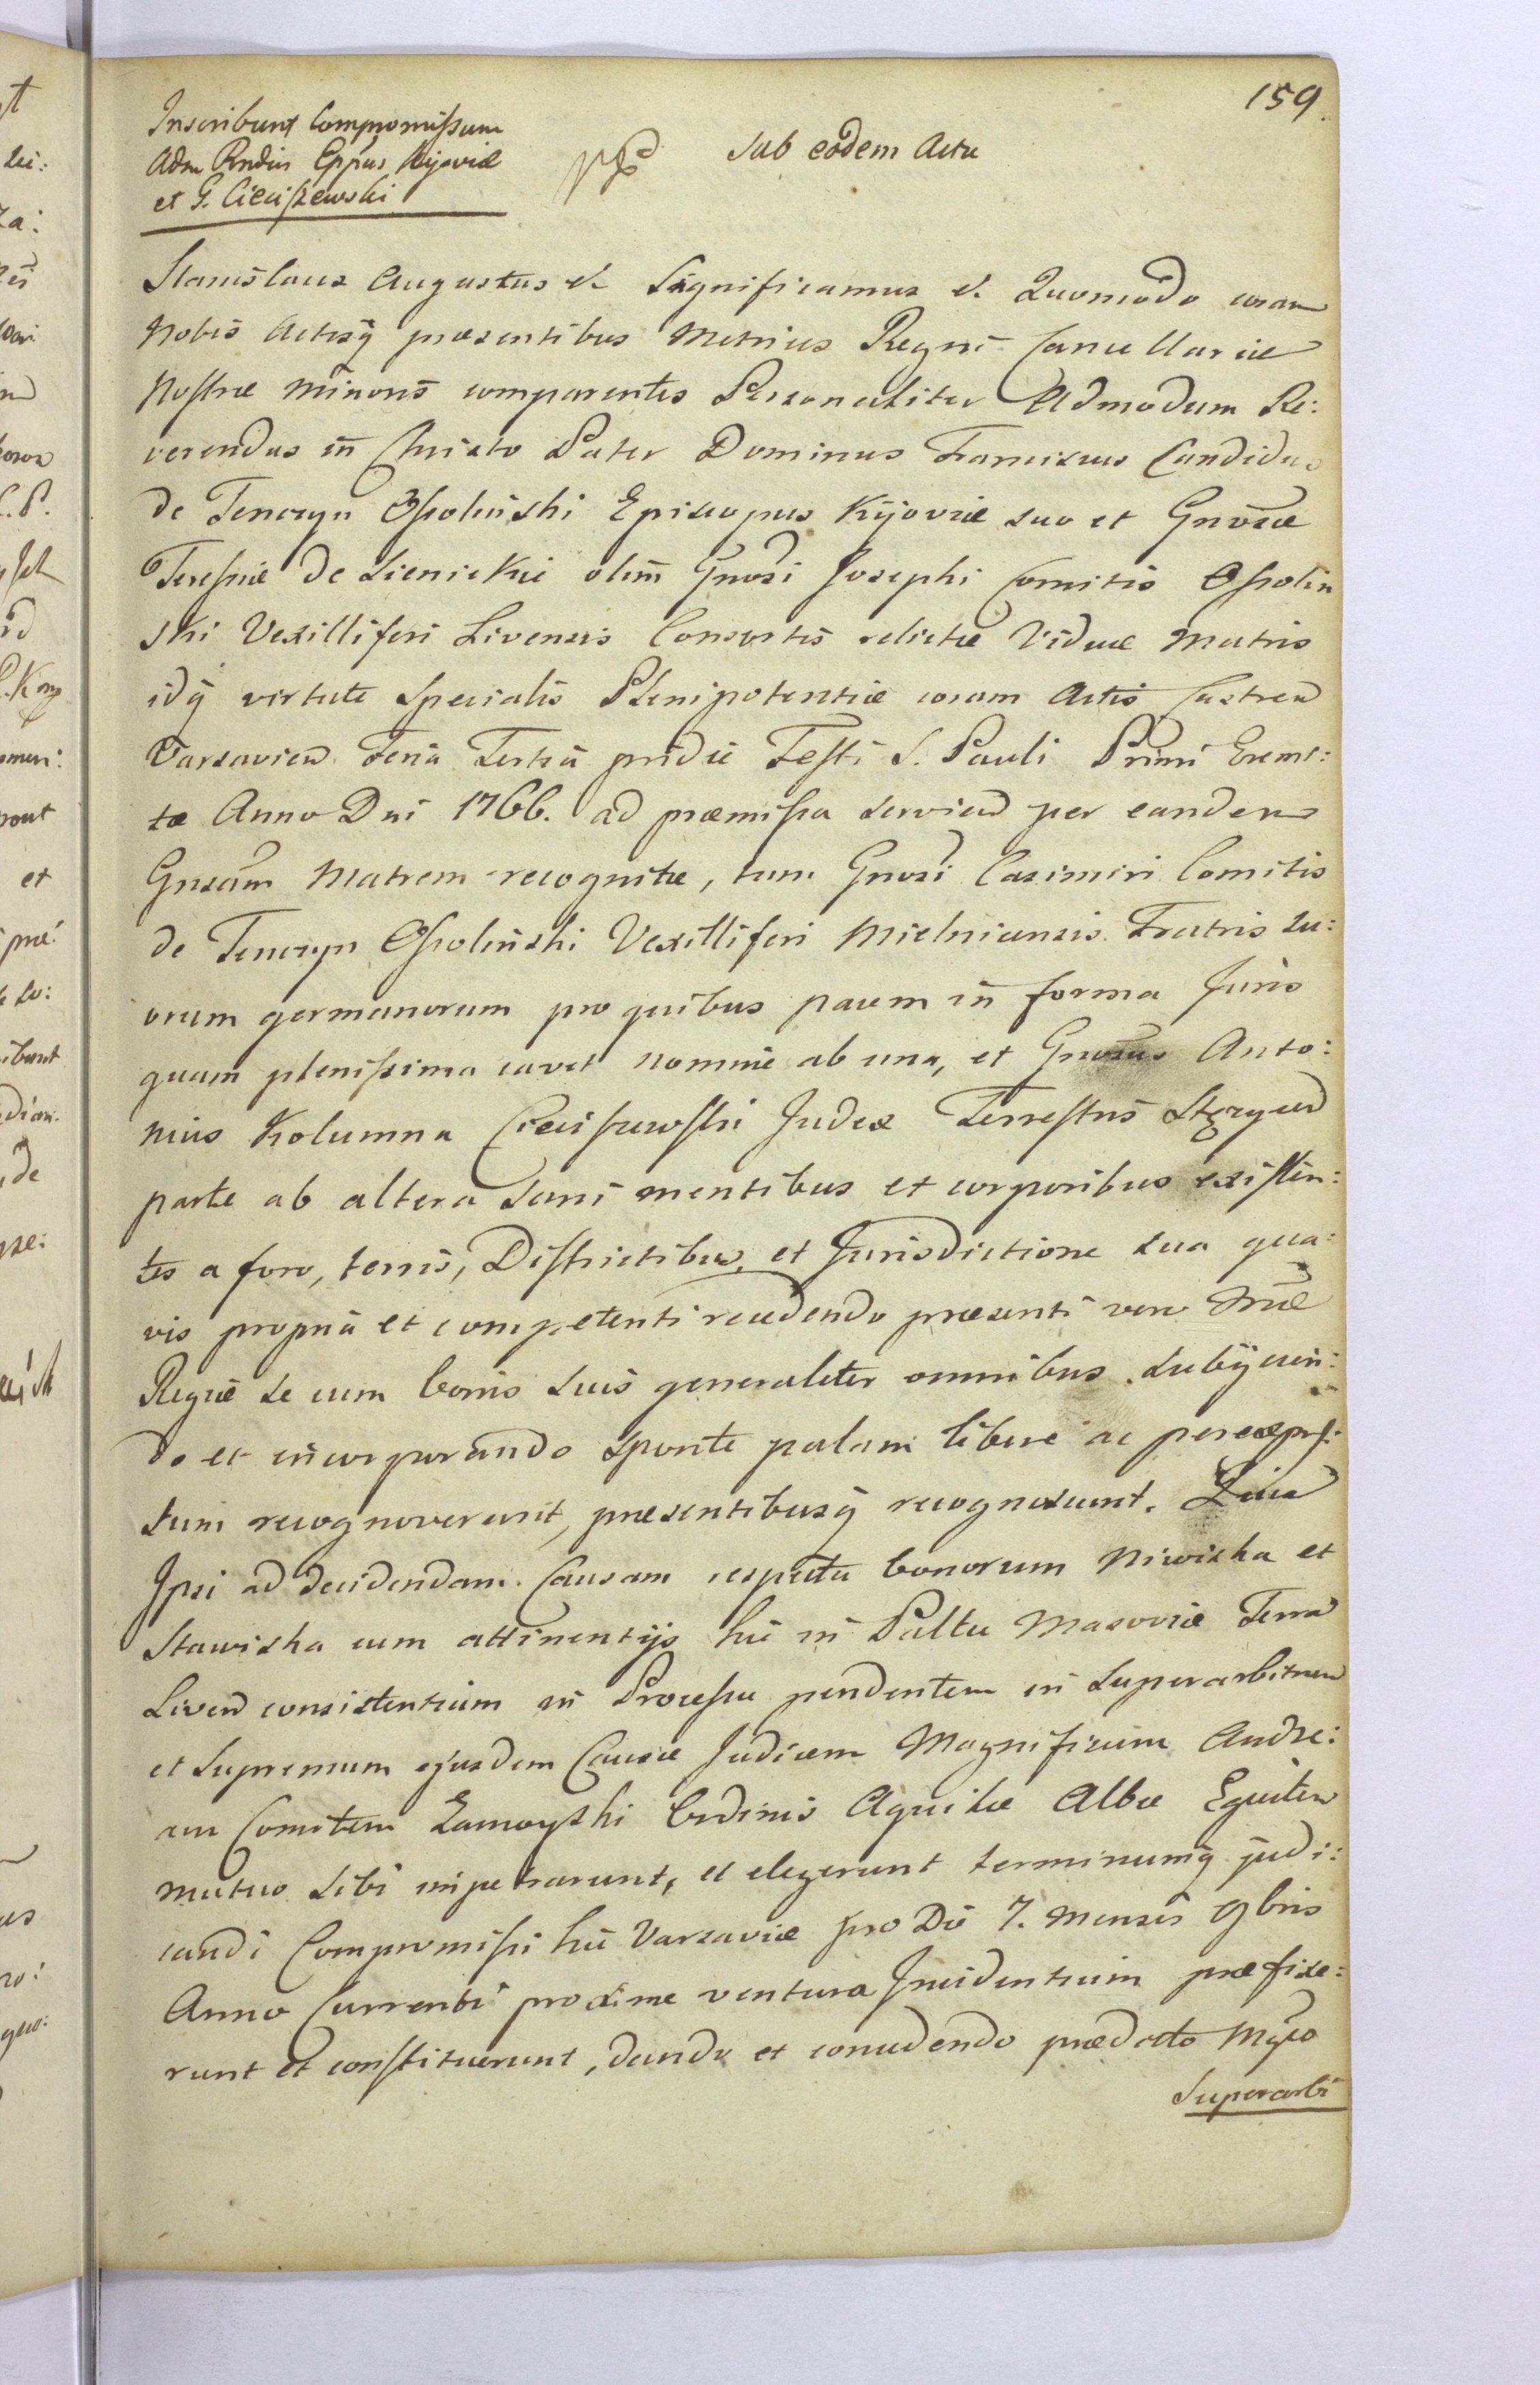 159.
Inscribunt Compromissum
Adm Rndus Eppus Kijoviæ
et G. Cieciszewski
Sub eodem Actu
Stanislaus Augustus & Significamus & Quomodo coram
Nobis Actisq præsentibus Metrices Regni Cancellariæ
Nostræ Minoris comparentes Personaliter Admodum Re:
verendus in Christo Pater Dominus Franciscus Candidus
de Tenczyn Ossoliński Episcopus Kijoviæ suo et Gnosæ
Teressiæ de Sienickie olim Gnosi Josephi Comitis Ossolin
ski Vexilliferi Livensis Consortis relictæ Viduæ Matris
idq virtute specialis Plenipotentiæ coram Actis Castren
Varsavien Feria Tertia pridie Festi S. Pauli Primi Eremi:
tæ Anno Dni 1766. ad præmissa servien per eandem
Gnsam Matrem recognitæ, tum Gnosi Casimiri Comitis
de Tenczyn Ossoliński Vexilliferi Mielnicensis Fratris su:
orum germanorum pro quibus pacem in forma Juris
quam plenissima cavet nomine ab una, et Gnosus Anto:
nius Kolumna Cieciszewski Judex Terrestris Stęzycen
parte ab altera sani mentibus et corporibus existen:
tes a foro, terris, Districtibus, et Jurisdictione sua qua:
vis propria et competenti recedendo præsenti vero Mrcæ
Regiæ se cum bonis suis generaliter omnibus subijcien:
do et incorporando sponte palam libere ac per expres:
sum recognoverunt, præsentibusq recognoscunt. Quia
Ipsi ad decidendam Causam respectu bonorum Niwiska et
Stawiska cum attinentijs hic in Pałtu Masoviæ Terra
Liven consistentium in Processu pendentem in Superarbitrum
et Supremum ejusdem Causæ Judicem Magnificum Andre:
am Comitem Zamoyski Ordinis Aquilæ Albæ Equitem
mutuo sibi impetrarunt, et elegerunt terminumq judi:
candi Compromissi hic Varsaviæ pro Die 7. Mensis 9bris
Anno Currenti proxime ventura Incidentium præfixe:
runt et constituerunt, dando et concedendo prædicto Mgco
Superarbi